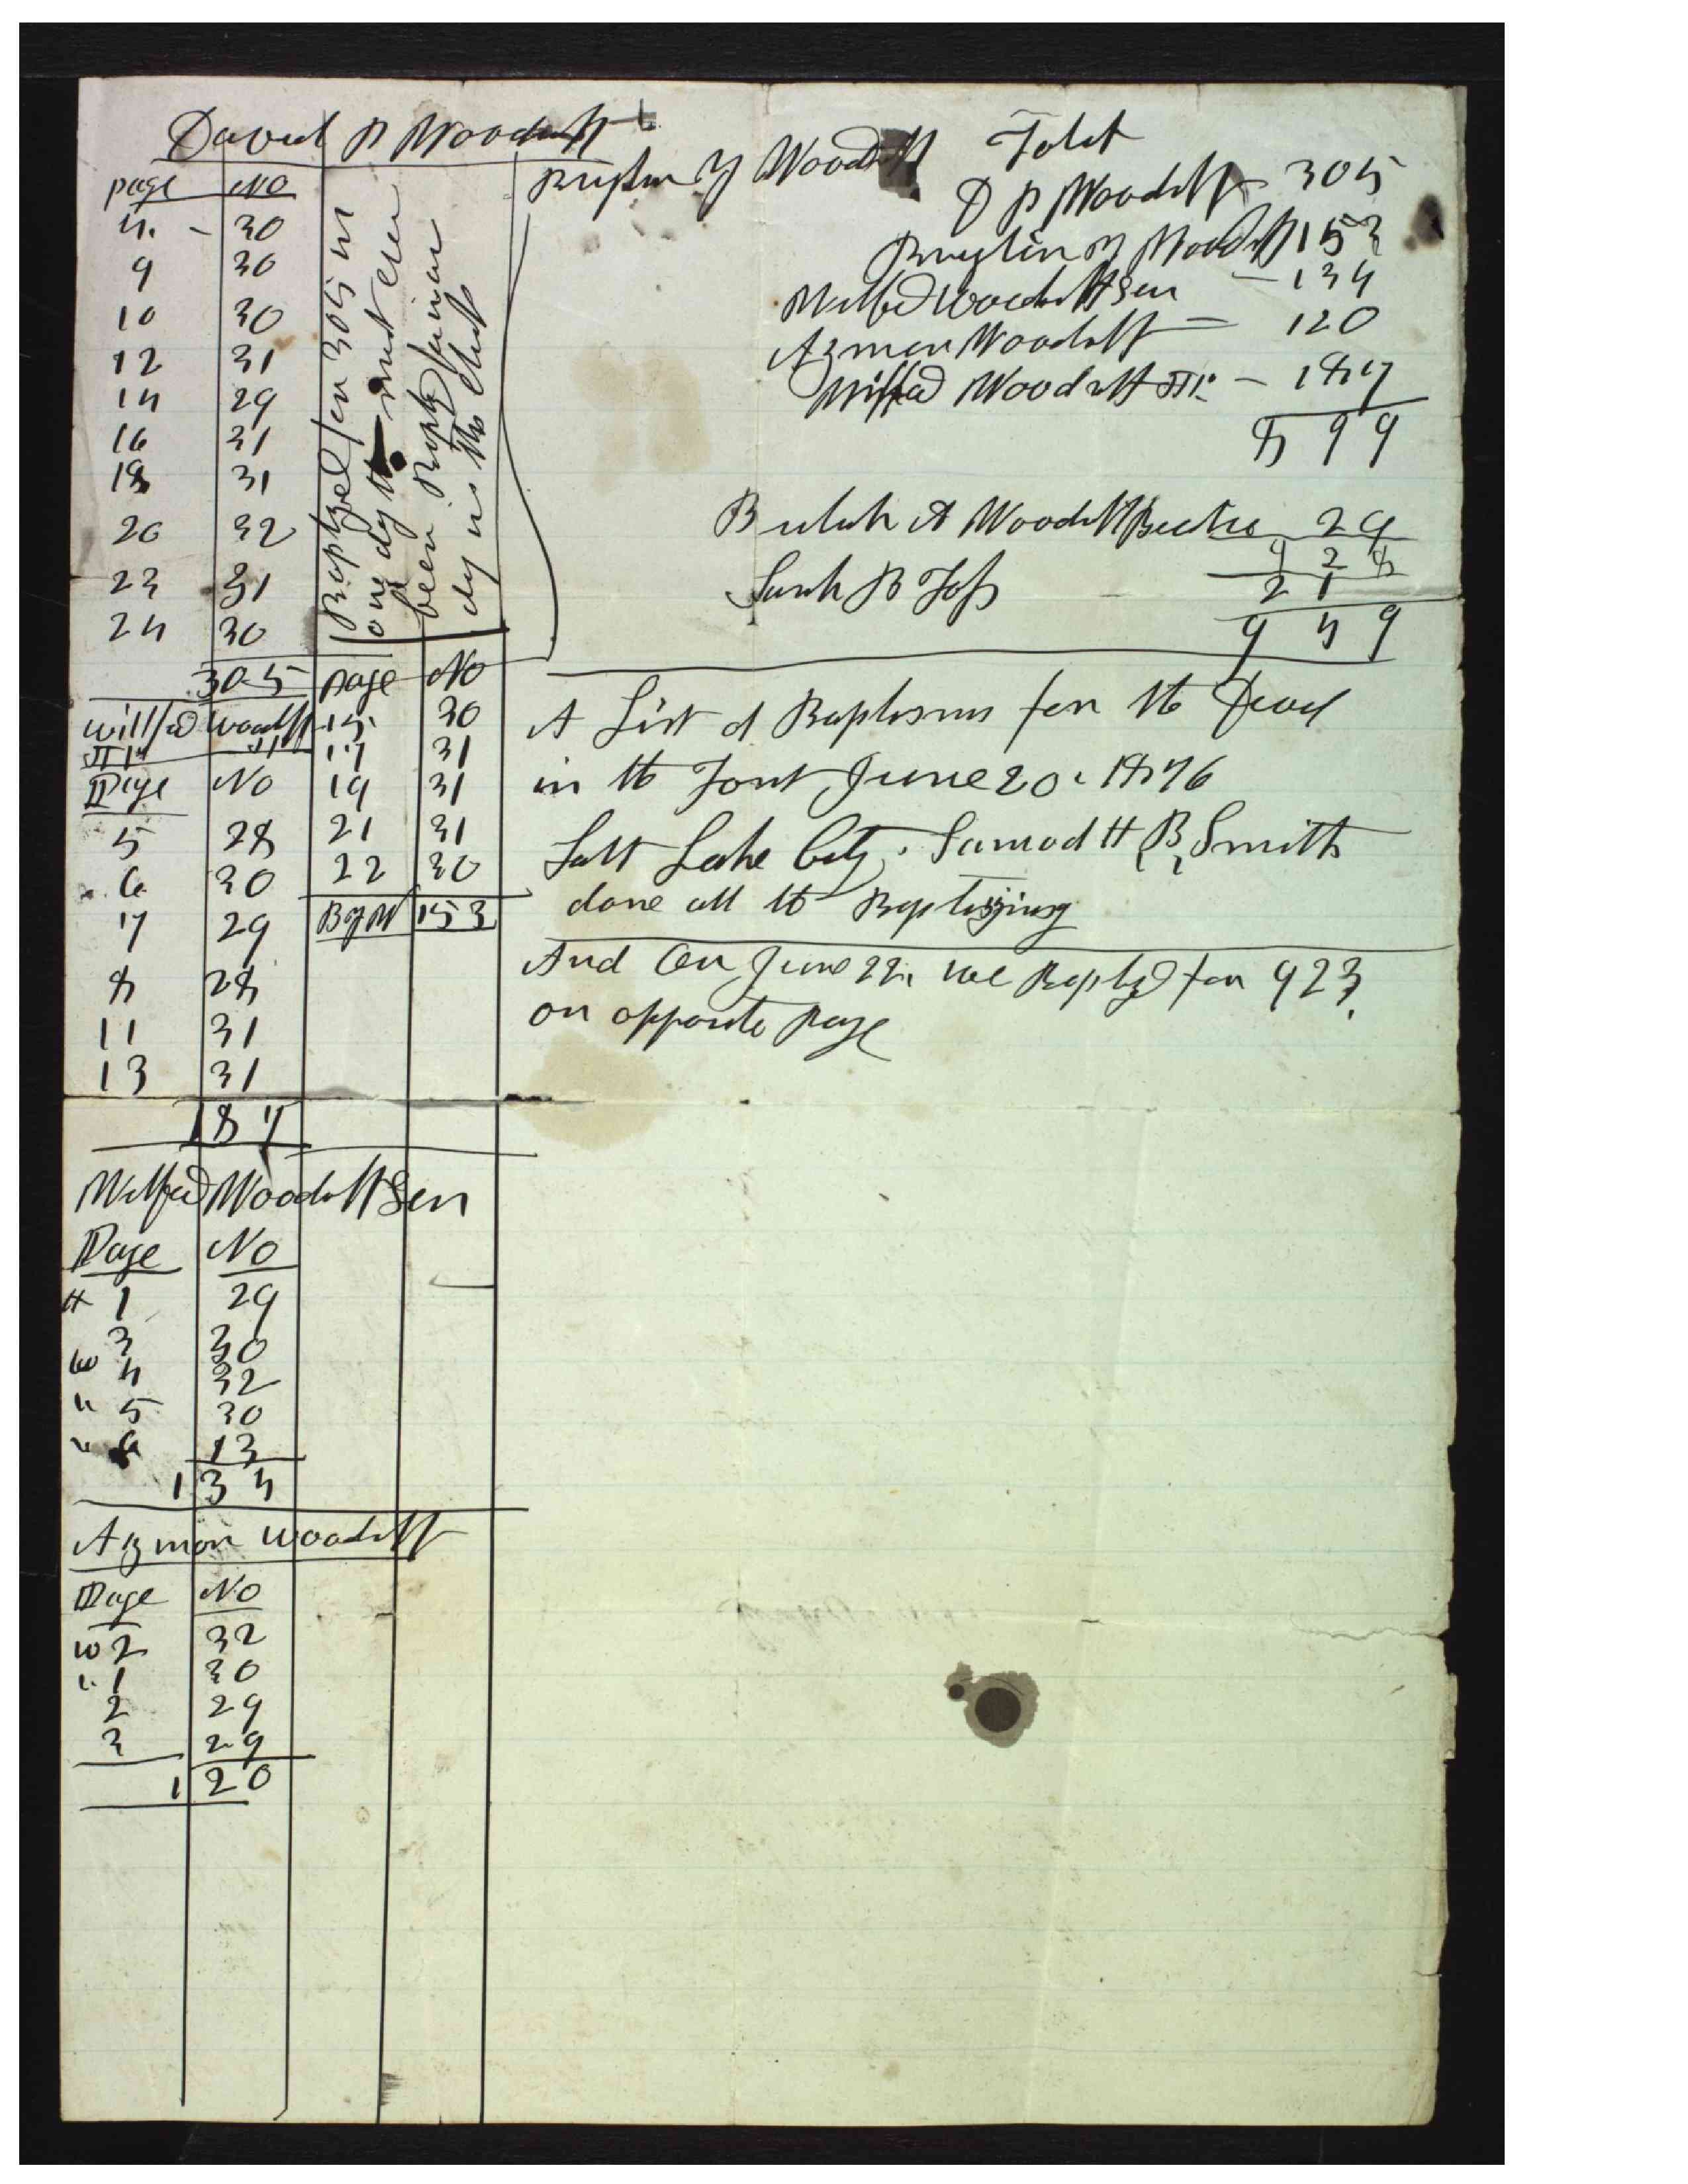 David P Woodruff
page No
4 - 30
9 30
10 30
12 31
14 29
16 31
18 31
20 32
23 31
24 30
305
Baptized for 305 in
one day the most ever
been Baptized for in one
day in this Church
Bruyhn Y Woodruff
page No
15 30
17 31
19 31
21 31
22 30
B Y W 153
Willfd Woodruff
Jr
Page No
5 28
6 30
7 29
8 28
11 31
13 31
187
Wilford Woodruff Sen
Page No
# 1 29
3 30
W 4 32
" 5 30
" 6 13
134
Azmon Woodruff
Page No
W 2 32
" 1 30
2 29
3 29
120
Totel
D P Woodruff 305
Bruylin Y Woodruff 153
Wilford Woodruff Sen - 134
Azmon Woodruff - 120
Wilford Woodruff Jr - 187
899
Bulah A Woodruff Beatie 29
928
Sarah B Foss 21
949
A List of Baptisms for the Dead
in the Font June 20. 1876
Salt Lake City. Samuel H B Smith
done all the Baptizing
And On June 22. we Baptzd for 923.
on opposite page